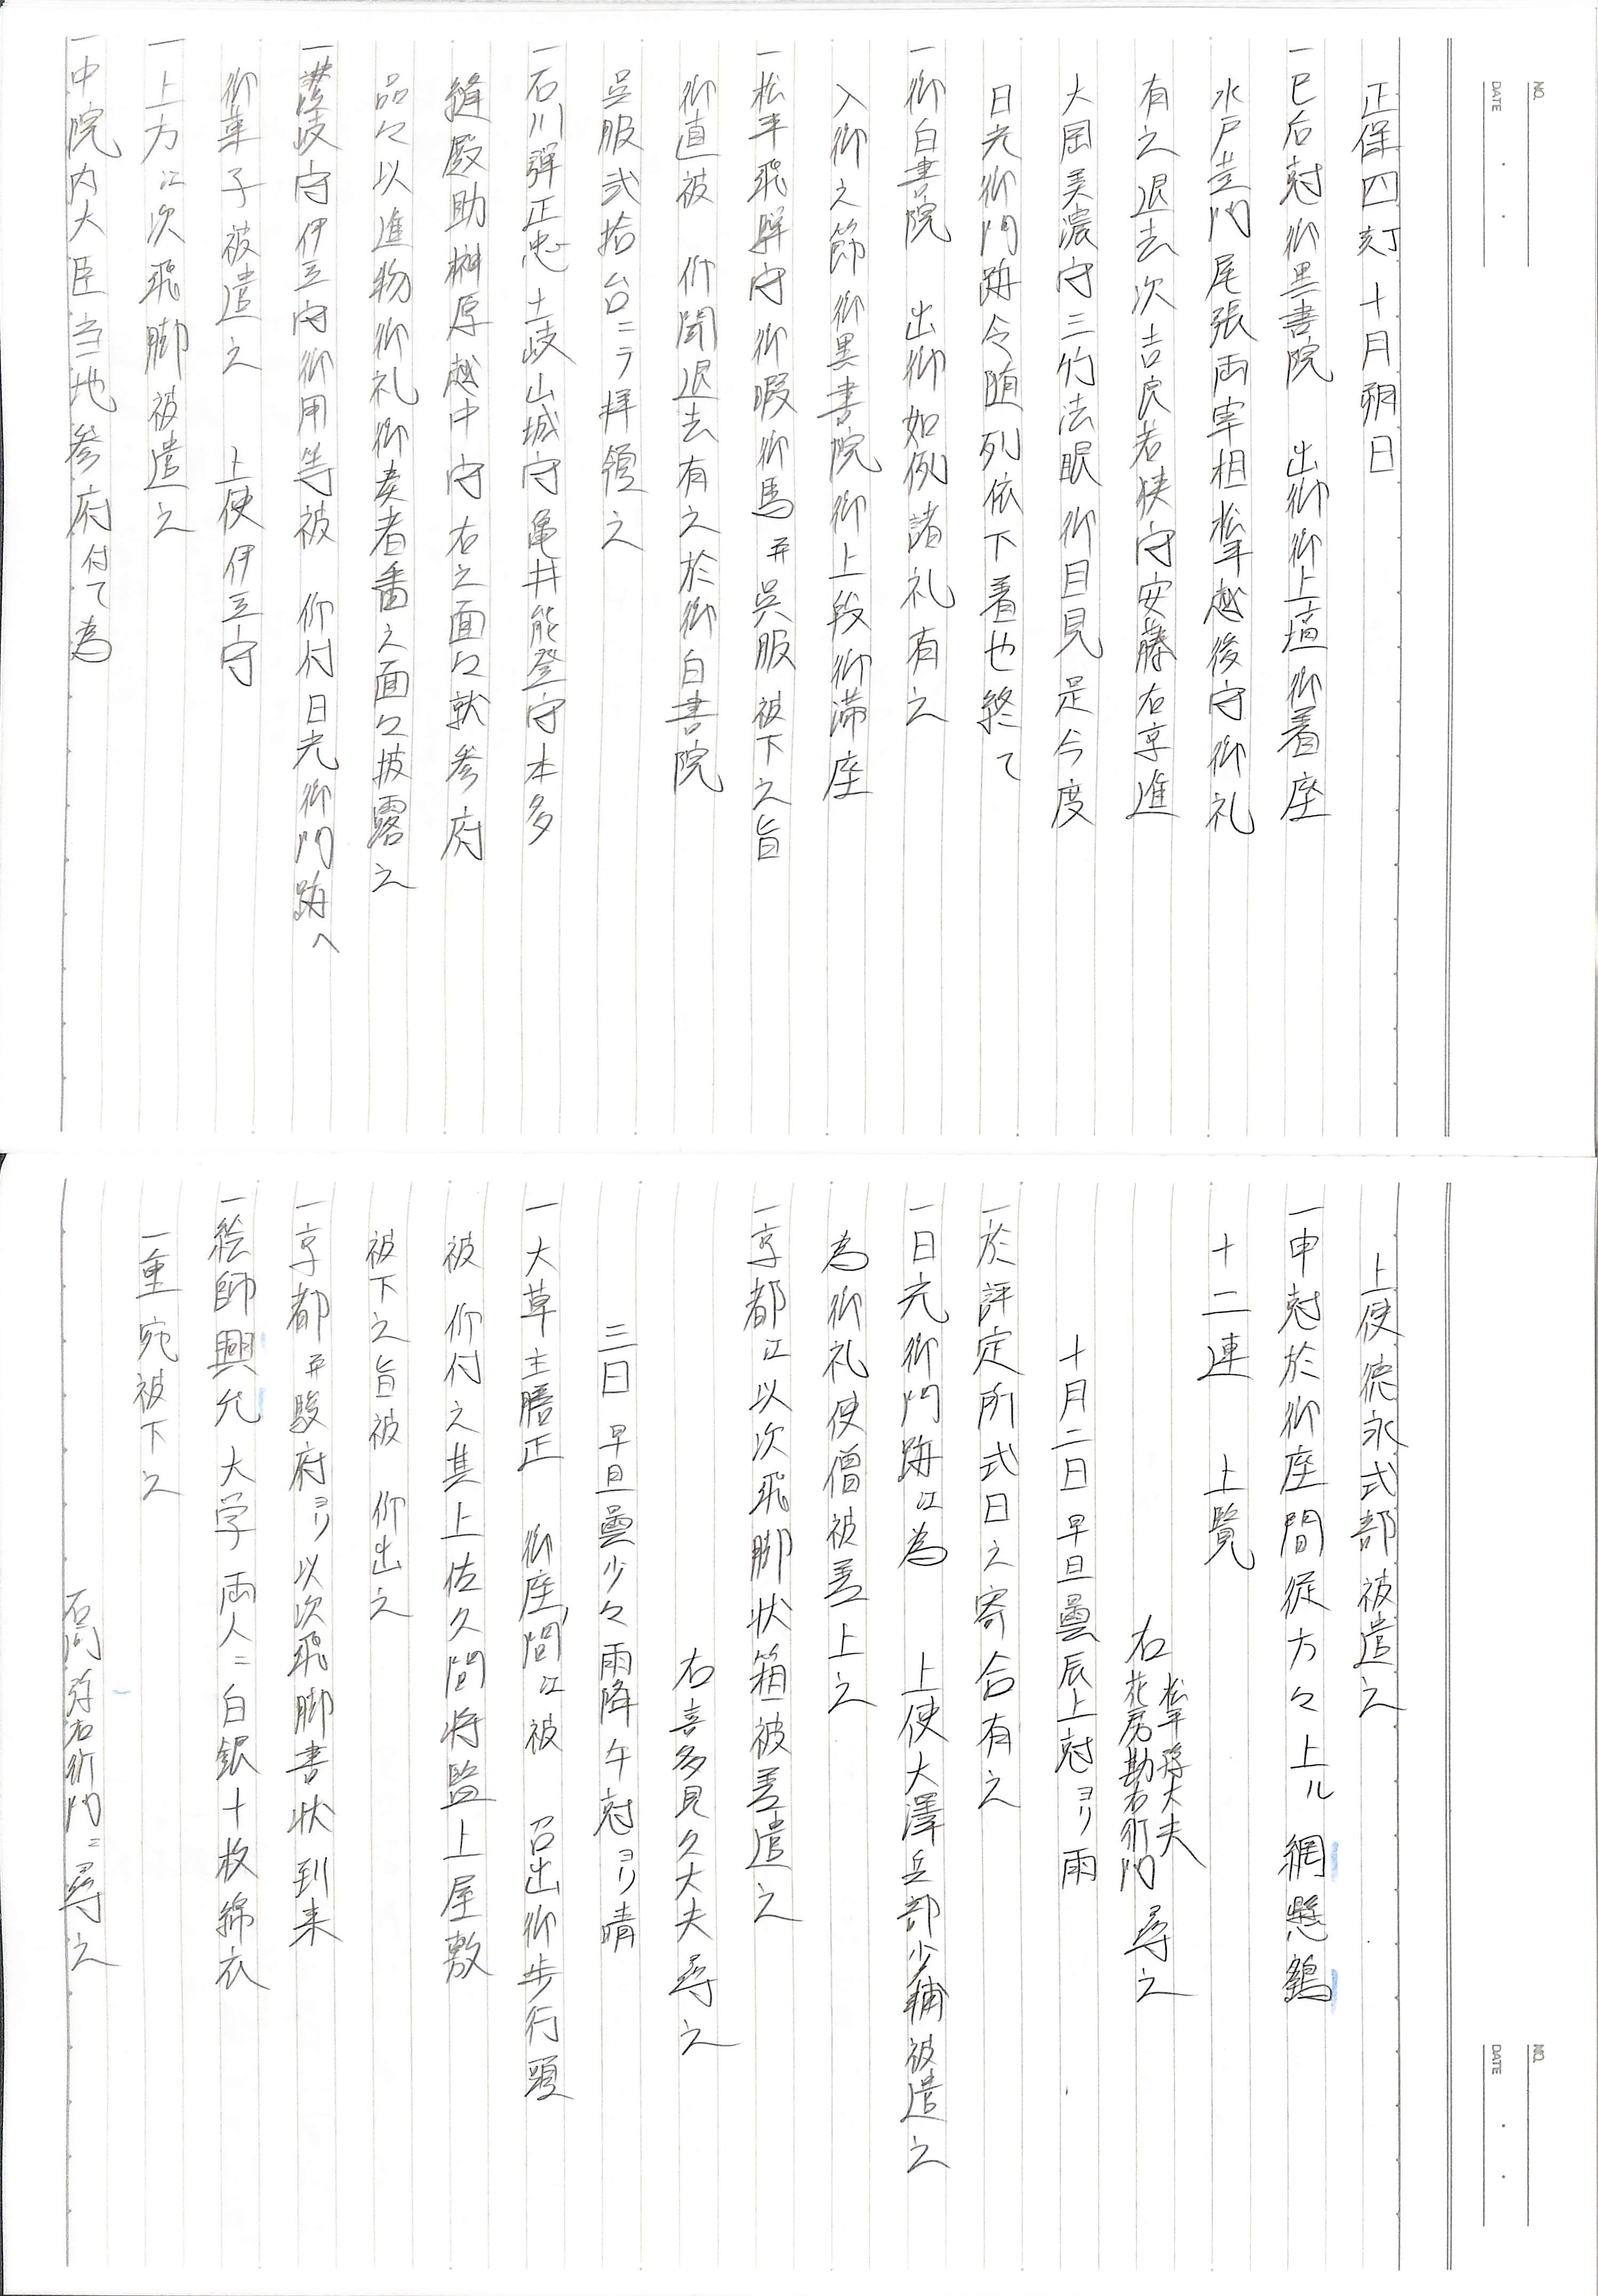 NO.
DATE
正保四刻十月朔日
一巳后尅御黒書院　出御御上壇御着座
水戸黄門尾張両宰相松平越後守御礼
有之退去次吉良若狭守安藤右京進
大岡美濃守三竹法眼御目見是今度
日光御門跡令随列依下着也終て
一御白書院　出御如例諸礼有之
入御之節御黒書院御上段御滞座
一松平飛騨守御暇御馬并呉服被下之旨
御直被　仰聞退去有之於御白書院
呉服弐拾台ニテ拝領之
一石川弾正忠土岐山城守亀井能登守本多
縫殿助榊原越中守右之面々就参府
品々以進物御礼御奏者番之面々披露之
一讃岐守伊豆守御用等被　仰付日光御門跡へ
御菓子被遣之　上使伊豆守
一上方江次飛脚被遣之
一中院内大臣当地参府付て為
NO.
DATE
上使徳永式部被遣之
一申尅於御座間従方々上ル網懸鶴
十二連　上覧
右 松平隼大夫 花房勘右衛門 尋之
十月二日 早旦曇辰上尅ヨリ雨
一於評定所式日之寄合有之
一日光御門跡江為　上使大澤兵部少輔被遣之
為御礼使僧被差上之
一京都江以次飛脚状箱一被差遣之
右喜多見久大夫尋之
三日 早旦曇少々雨降午尅ヨリ晴
一大草主膳正　御座間江被　召出御歩行頭
被　仰付之其上佐久間将監上屋敷
被下之旨被　仰出之
一京都并駿府ヨリ以次飛脚書状到来
一絵師興允大学両人ニ白銀十枚綿衣
一重宛被下之
石河弥右衛門ニ尋之